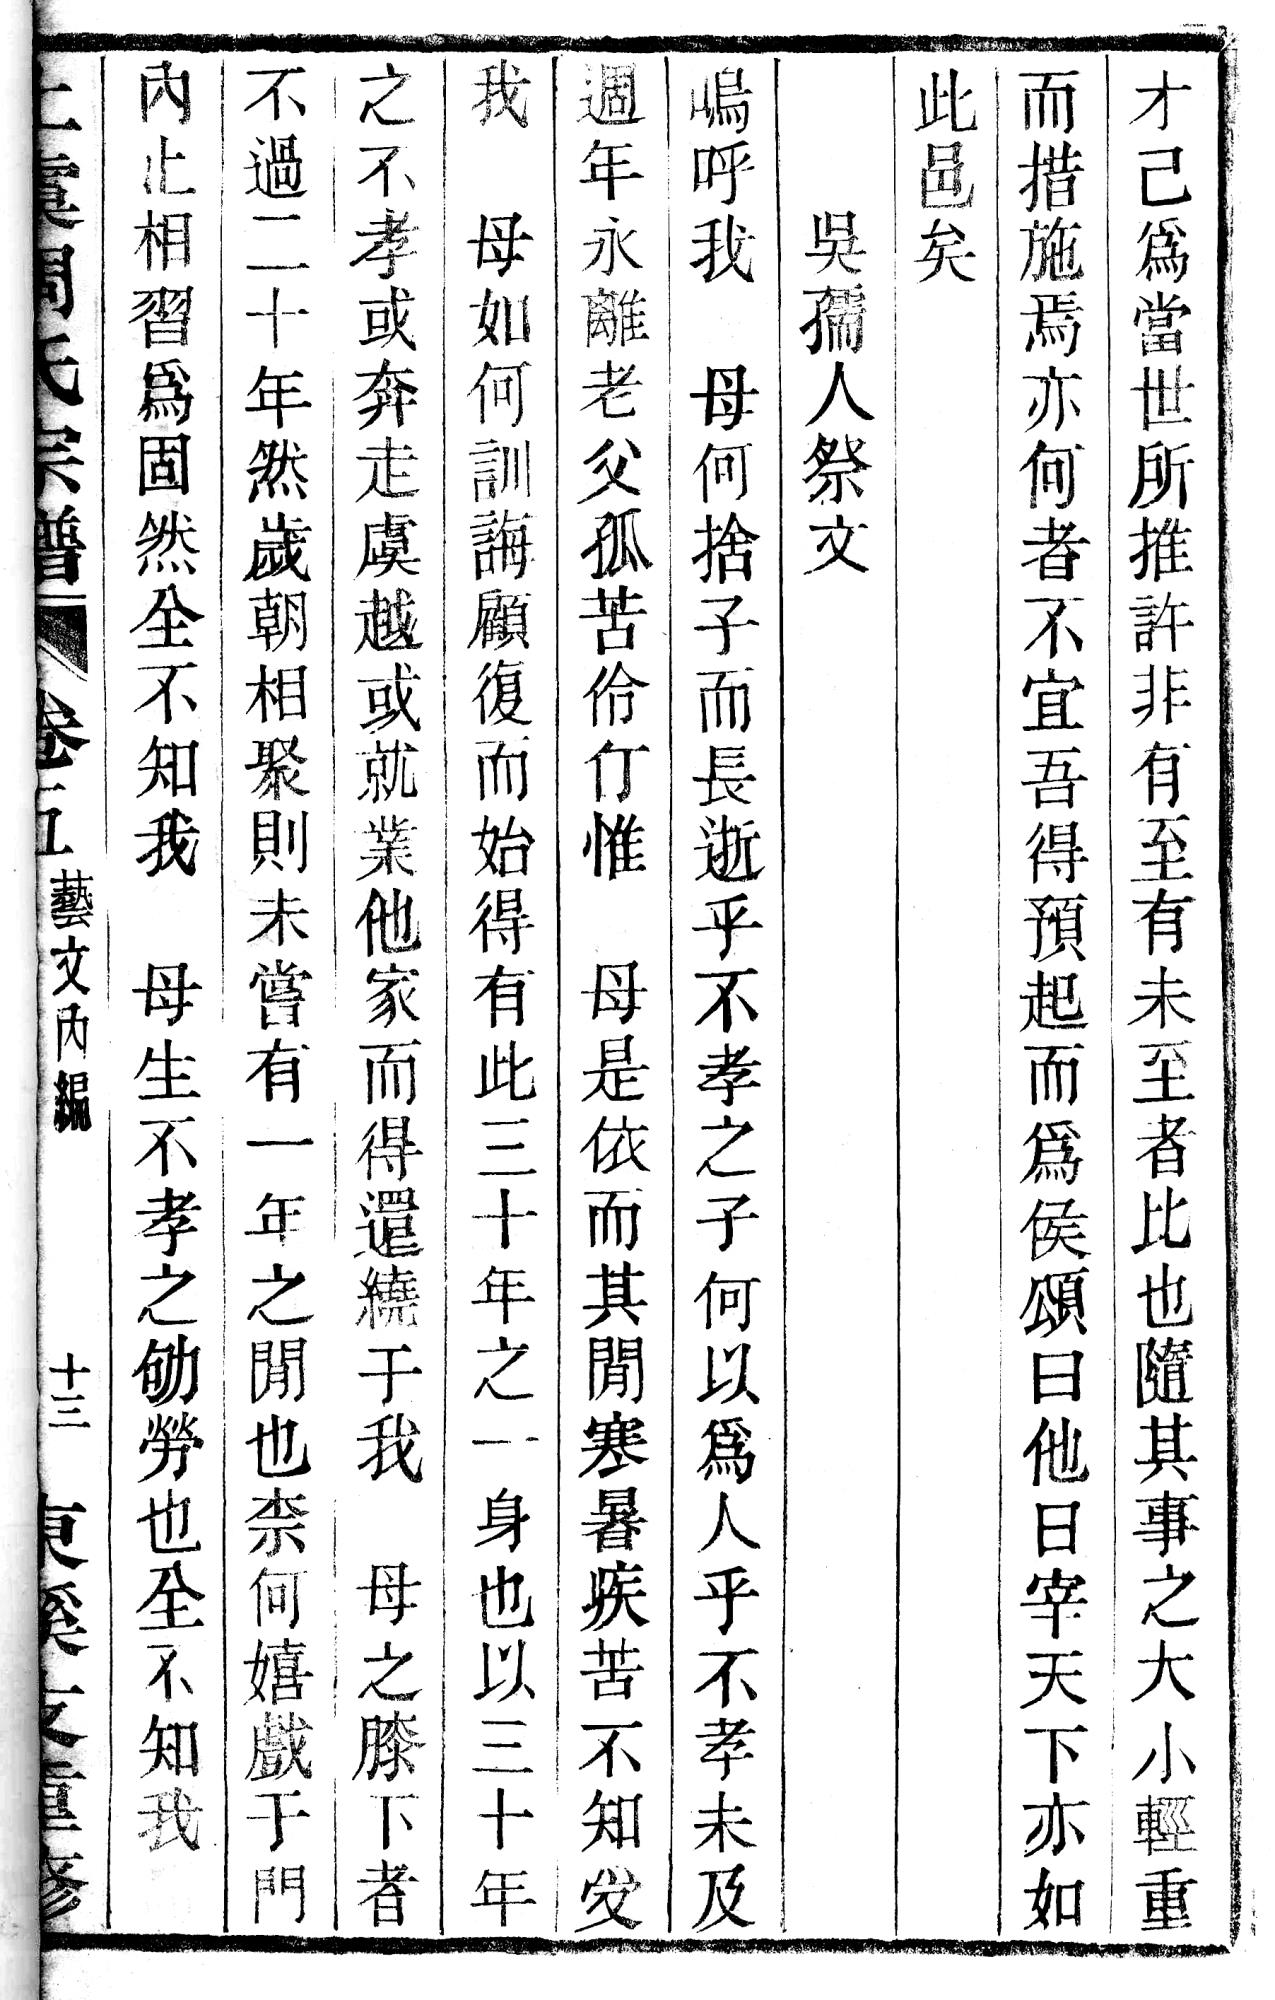 才己爲當世所推許非有至有未至者比也隨其事之大小輕重
而措施焉亦何者不宜吾得預起而爲侯頌曰他日宰天下亦如
此邑矣
吳孺人祭文
嗚呼我　母何捨子而長逝乎不孝之子何以爲人乎不孝未及
週年永離老父孤苦伶仃惟　母是依而其閒寒暑疾苦不知受
我　母如何訓誨顧復而始得有此三十年之一身也以三十年
之不孝或奔走虞越或就業他家而得還繞于我　母之膝下者
不過二十年然歲朝相聚則未嘗有一年之閒也柰何嬉戲于門
內止相習爲固然全不知我　母生不孝之劬勞也全不知我
上虞周氏宗譜　卷五　藝文內編　十三　東溪支重修